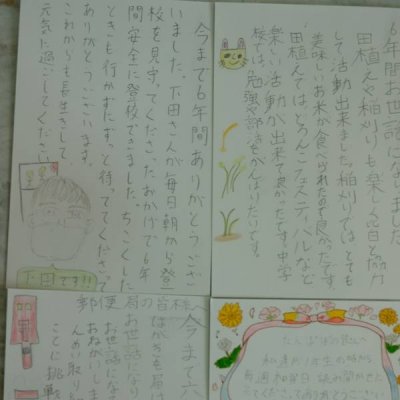 今まで6年間ありがとうござい
いました。下田さんが毎日朝から登
校を見守ってくださったおかげで6年
間安全に登校できました。ちこくした
ときも行かずにずっと待ってくださって
ありがとうございます。
これからも長生きして
元気に過ごしてください
下田です!!
6年間お世話になりました
田植えや稲刈りも楽しく皆と協力
して活動出来ました。稲刈りではとても
美味しいお米が食べられたので良かったです。
田植えではどろんこフェスティバルなど
楽しい活動が出来て良かったです。中学
校では、勉強や部活をがんばりたいです。
郵便局の皆様へ
今まで六
はがきを届け
お世話になり
お世話にな
おねがいしま
ことに挑戦
たんぽぽの皆さんへ
私達が1年生の時から
毎週相曜日読み聞かせに
きてくださってありがとうございま